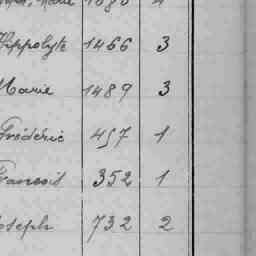 Hippolyte 1466 3
Marie 1489 3
Frédéric 457 1
François 352 1
Joseph 732 2